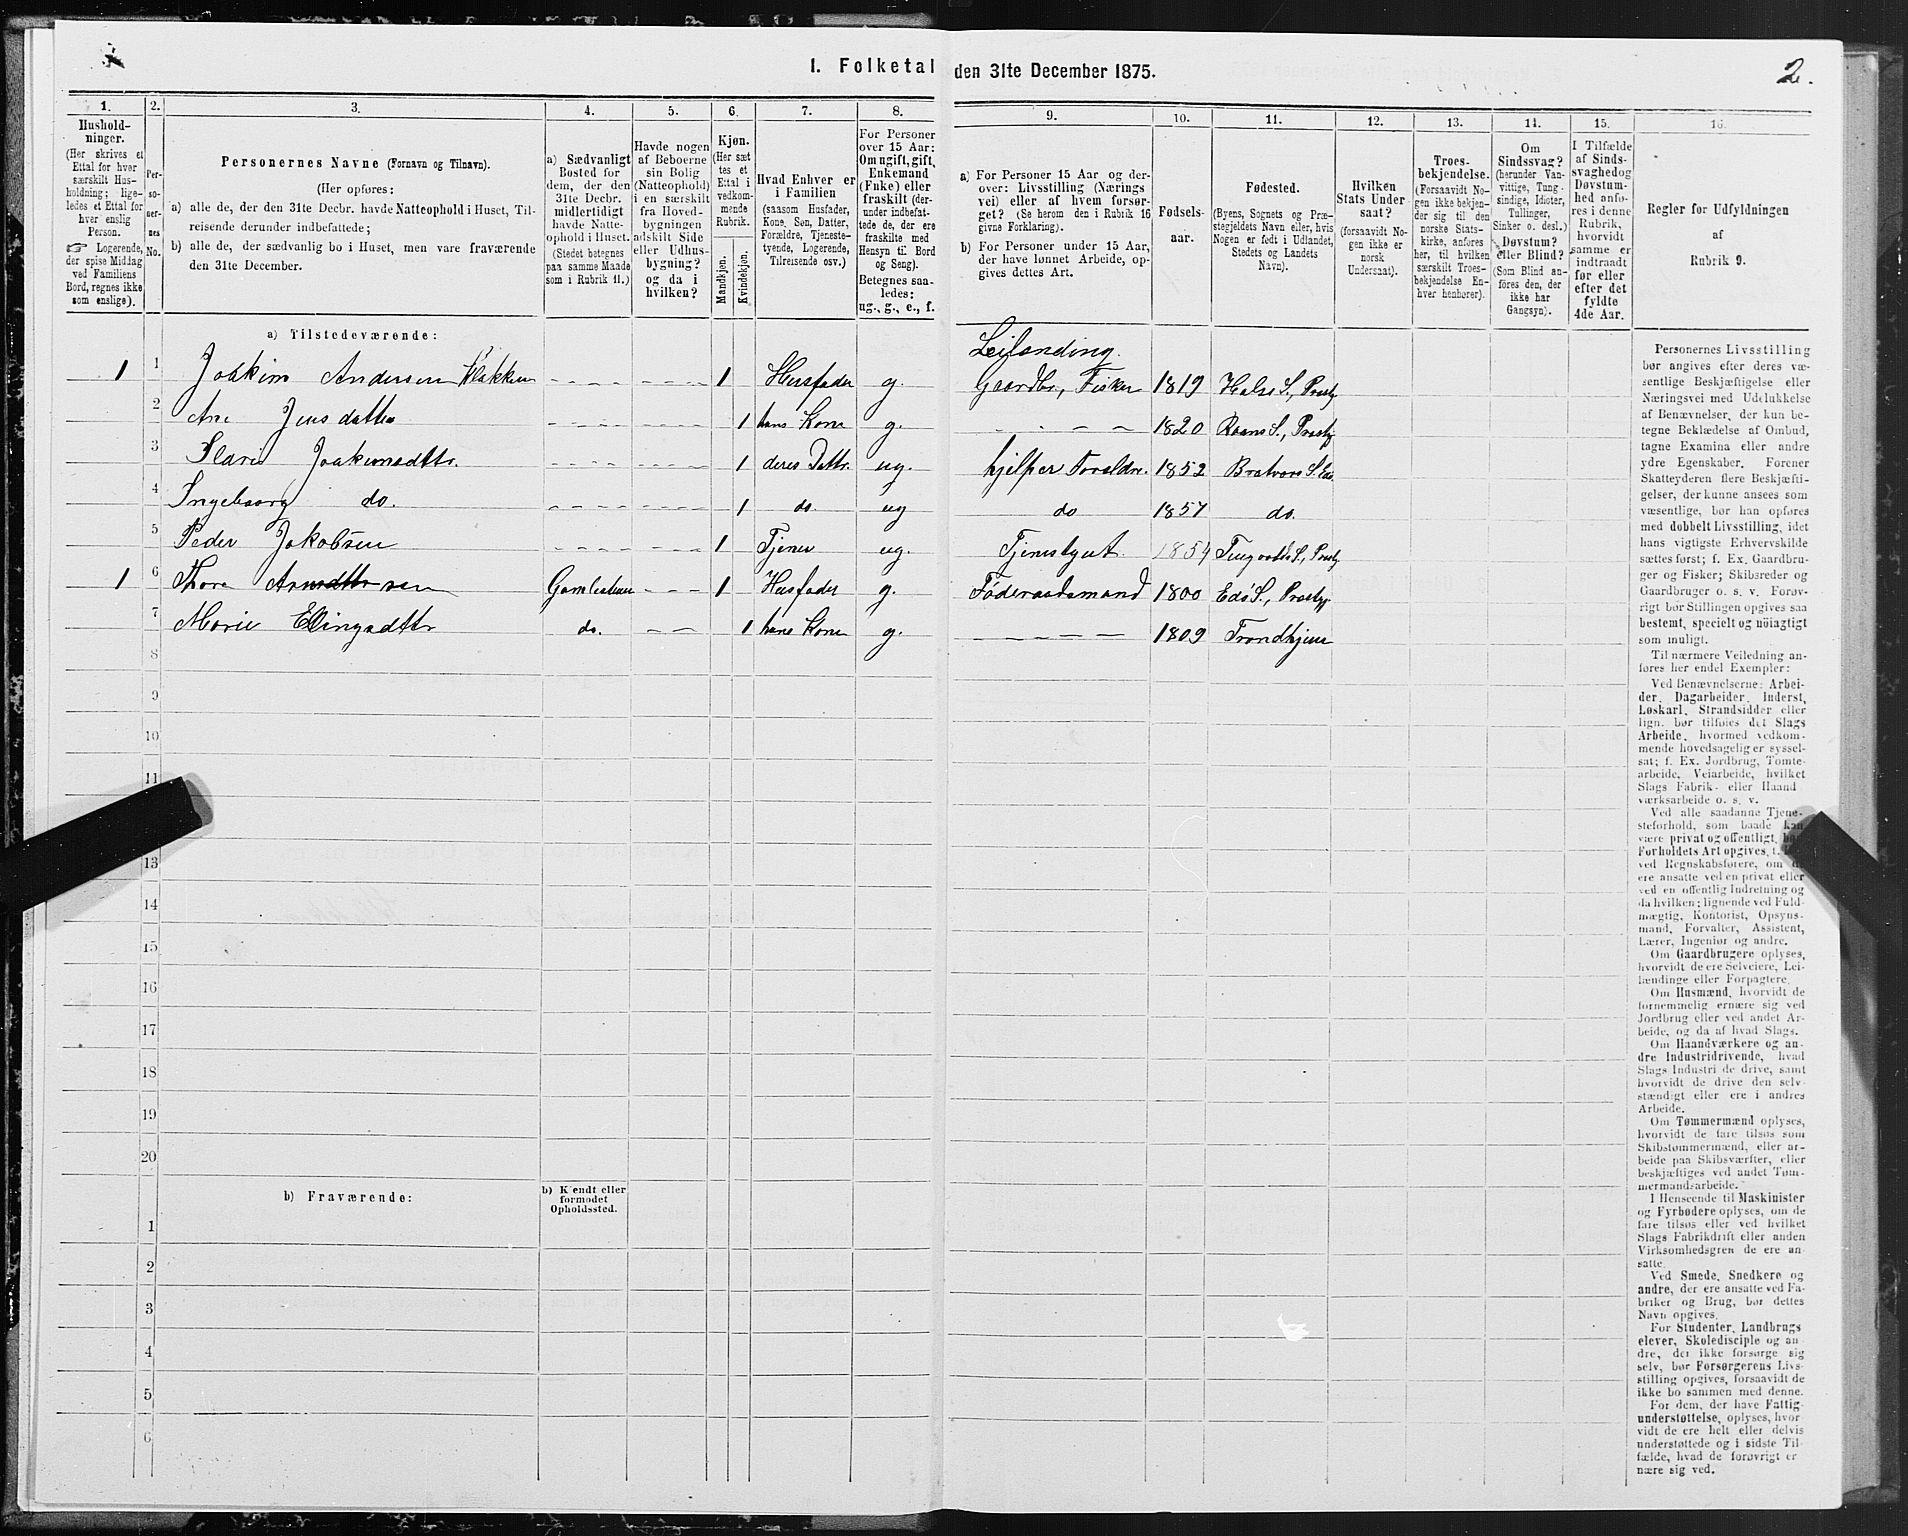 I. Folketal den 31te December 1875.
2.
1.
Hushold-
ninger.
(Her skrives et
Ettal for hver
særskilt Hus-
holdning; lige-
ledes et Ettal for
hver enslig
Person.
☞ Logerende,
der spise Middag
ved Familiens
Bord, regnes ikke
som enslige).
2.
Per-
so-
ner-
nes
No.
3.
Personernes Navne (Fornavn og Tilnavn).
(Her opføres:
a) alle de, der den 31te Decbr. havde Natteophold i Huset, Til-
reisende derunder indbefattede;
b) alle de, der sædvanlig bo i Huset, men vare fraværende
den 31te December.
4.
a) Sædvanligt
Bosted for
dem, der den
31te Decbr.
midlertidigt
havde Natte-
ophold i Huset.
(Stedet betegnes
paa samme Maade
som i Rubrik 11.)
5.
Havde nogen
af Beboerne
sin Bolig
(Natteophold)
i en særskilt
fra Hoved-
bygningen
adskilt Side
eller Udhus-
bygning?
og da i
hvilken?
6.
Kjøn.
(Her sæt
tes et
Ettal i
vedkom-
mende
Rubrik.
Mandkjøn.
Kvindekjøn.
7.
Hvad Enhver er
i Familien
(saasom Husfader,
Kone, Søn, Datter,
Forældre, Tjeneste-
tyende, Logerende,
Tilreisende osv.)
8.
For Personer
over 15 Aar:
Om ugift, gift,
Enkemand
(Enke) eller
fraskilt (der-
under indbefat-
tede de, der ere
fraskilte med
Hensyn til Bord
og Seng).
Betegnes saa-
ledes:
ug., g., e., f.
9.
a) For Personer 15 Aar og der-
over: Livsstilling (Nærings
vei) eller af hvem forsør-
get? (Se herom den i Rubrik 16
givne Forklaring).
b) For Personer under 15 Aar,
der have lønnet Arbeide, op-
gives dettes Art.
10.
Fødsels-
aar.
11.
Fødested.
(Byens, Sognets og Præ-
stegjeldets Navn eller, hvis
Nogen er født i Udlandet,
Stedets og Landets
Navn).
12.
Hvilken
Stats Under
saat?
(forsaavidt No-
gen ikke er
norsk
Undersaat).
13.
Troes-
bekjendelse.
(Forsaavidt No-
gen ikke bekjen-
der sig til den
norske Stats-
kirke, anføres
her, til hvilken
særskilt Troes-
bekjendelse En-
hver henhører).
14.
Om
Sindssvag?
(herunder Van-
vittige, Tung-
sindige, Idioter,
Tullinger,
Sinker o. desl.)
Døvstum?
eller Blind?
(Som Blind an-
føres den, der
ikke har
Gangsyn).
15.
I Tilfælde
af Sinds-
svaghed og
Døvstum-
hed anfø-
res i denne
Rubrik,
hvorvidt
samme er
indtraadt
før eller
efter det
fyldte
4de Aar.
16.
Regler for Udfyldningen
af
Rubrik 9.
a) Tilstedeværende:
Leilænding.
1 1 Joakim Andersen Klakken - - - - - - 1 Husfader g. Gaardbr, Fisker 1819 Halse S., Præstg
2 Ane Jensdatter 1 hans Kone g. - - - - 1820 S., Præstg
3 Joakimsdttr. 1 deres Dattr. ug. hjelper Foreldre. 1852 S. Edø
4 Ingeboorg do. 1 do. ug do 1857 do.
5 Peder Jakobsen 1 Tjener ug. Tjenestgut. 1854 S., Præstg
1 6 Thore 1 Husfader g. Føderaadsmand 1800 Edø S., Præstgj.
7 Marie Ellingsdttr do. - - 1 hans Kone g. - - - - 1809 Trondhjem
8
9
10
11
13
14
15
16
17
18
19
20
b) Fraværende:
b) Kjendt eller
formodet
Opholdssted.
1
2
3
4
5
6
Personernes Livsstilling
bør angives efter deres væ-
sentlige Beskjæftigelse eller
Næringsvei med Udelukkelse
af Benævnelser, der kun be-
tegne Beklædelse af Ombud,
tagne Examina eller andre
ydre Egenskaber. Forener
Skatteyderen flere Beskjæfti-
gelser, der kunne ansees som
væsentlige, bør han opføres
med dobbelt Livsstilling, idet
hans vigtigste Erhvervskilde
sættes først; f. Ex. Gaardbru-
ger og Fisker; Skibsreder og
Gaardbruger o. s. v. Forøv-
rigt bør Stillingen opgives saa
bestemt, specielt og nöiagtigt
som muligt.
Til nærmere Veiledning an-
føres her endel Exempler:
Ved Benævnelserne: Arbei-
der, Dagarbeider, Inderst,
Løskarl, Strandsidder eller
lign. bør tilføies det Slags
Arbeide, hvormed vedkom-
mende hovedsagelig er syssel-
sat; f. Ex. Jordbrug, Tomte-
arbeide, Veiarbeide, hvilket
Slags Fabrik- eller Haand
værksarbeide o. s. v.
Ved alle saadanne Tjene-
steforhold, som baade kan
være privat og offentligt, bør
Forholdets Art opgives, f.
ved Regnskabsførere, om de
ere ansatte ved en privat eller
ved en offentlig Indretning og
da hvilken; lignende ved Fuld-
mægtig, Kontorist, Opsyns-
mand, Forvalter, Assistent,
Lærer, Ingeniør og andre.
Om Gaardbrugere oplyses,
hvorvidt de ere Selveiere, Lei-
lændinge eller Forpagtere.
Om Husmænd, hvorvidt de
fornemmelig ernære sig ved
Jordbrug eller ved andet Ar-
beide, og da af hvad Slags.
Om Haandværkere og an-
dre Industridrivende, hvad
Slags Industri de drive, samt
hvorvidt de drive den selv-
stændigt eller ere i andres
Arbeide.
Om Tømmermænd oplyses,
hvorvidt de fare tilsøs som
Skibstømmermænd, eller ar-
beide paa Skibsværfter, eller
beskjæftiges ved andet Tøm-
mermandsarbeide.
I Henseende til Maskinister
og Fyrbødere oplyses, om de
fare tilsøs eller ved hvilket
Slags Fabrikdrift eller anden
Virksomhedsgren de ere an-
satte.
Ved Smede, Snedkere og
andre, der ere ansatte ved Fa-
briker og Brug, bør dettes
Navn opgives.
For Studenter, Landbrugs
elever, Skoledisciple og an-
dre, der ikke forsørge sig
selv, bør Forsørgerens Livs-
stilling opgives, forsaavidt de
ikke bo sammen med denne.
For dem, der have Fattig-
understøttelse, oplyses, hvor-
vidt de ere helt eller delvis
understøttede og i sidste Til-
fælde, hvad de forøvrigt er
nære sig ved.